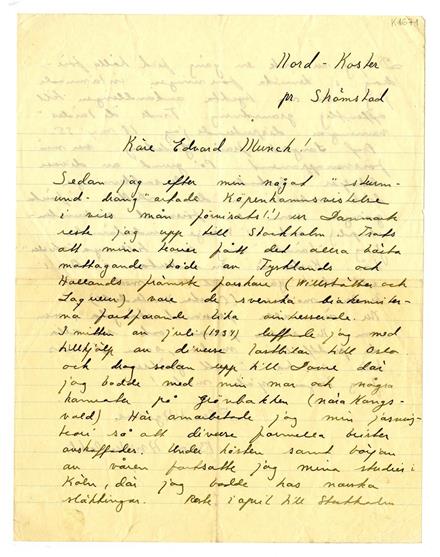 K1671
Nord-Koster
pr. Strömstad
Käre Edvard Munch!
Sedan jag efter min något "sturm-
und-drang"-artade Köpenhamnsvistelse
i viss mån förvisats(!) ur Danmark
reste jag upp till Stockholm. Trots
att mina teorier fått det allra bästa
mottagande både av Tysklands och
Hollands främste forskare (Willstätter och
Laqueur) vare de svenska biokemister-
na fortfarande lika ointresserade.
I mitten av juli (1934) luffade jag med
tillhjälp av diverse lastbilar till Oslo
och drog sedan upp till där
jag bodde med min mor och några
kamrater på (nära Kongs-
vold) Här omarbetade jag min jäsnings-
teori så att diverse formella brister
avskaffades. Under hösten samt början
av våren fortsatte jag mina studier i
Köln, där jag bodde hos
släktingar. Reste i april till Stockholm